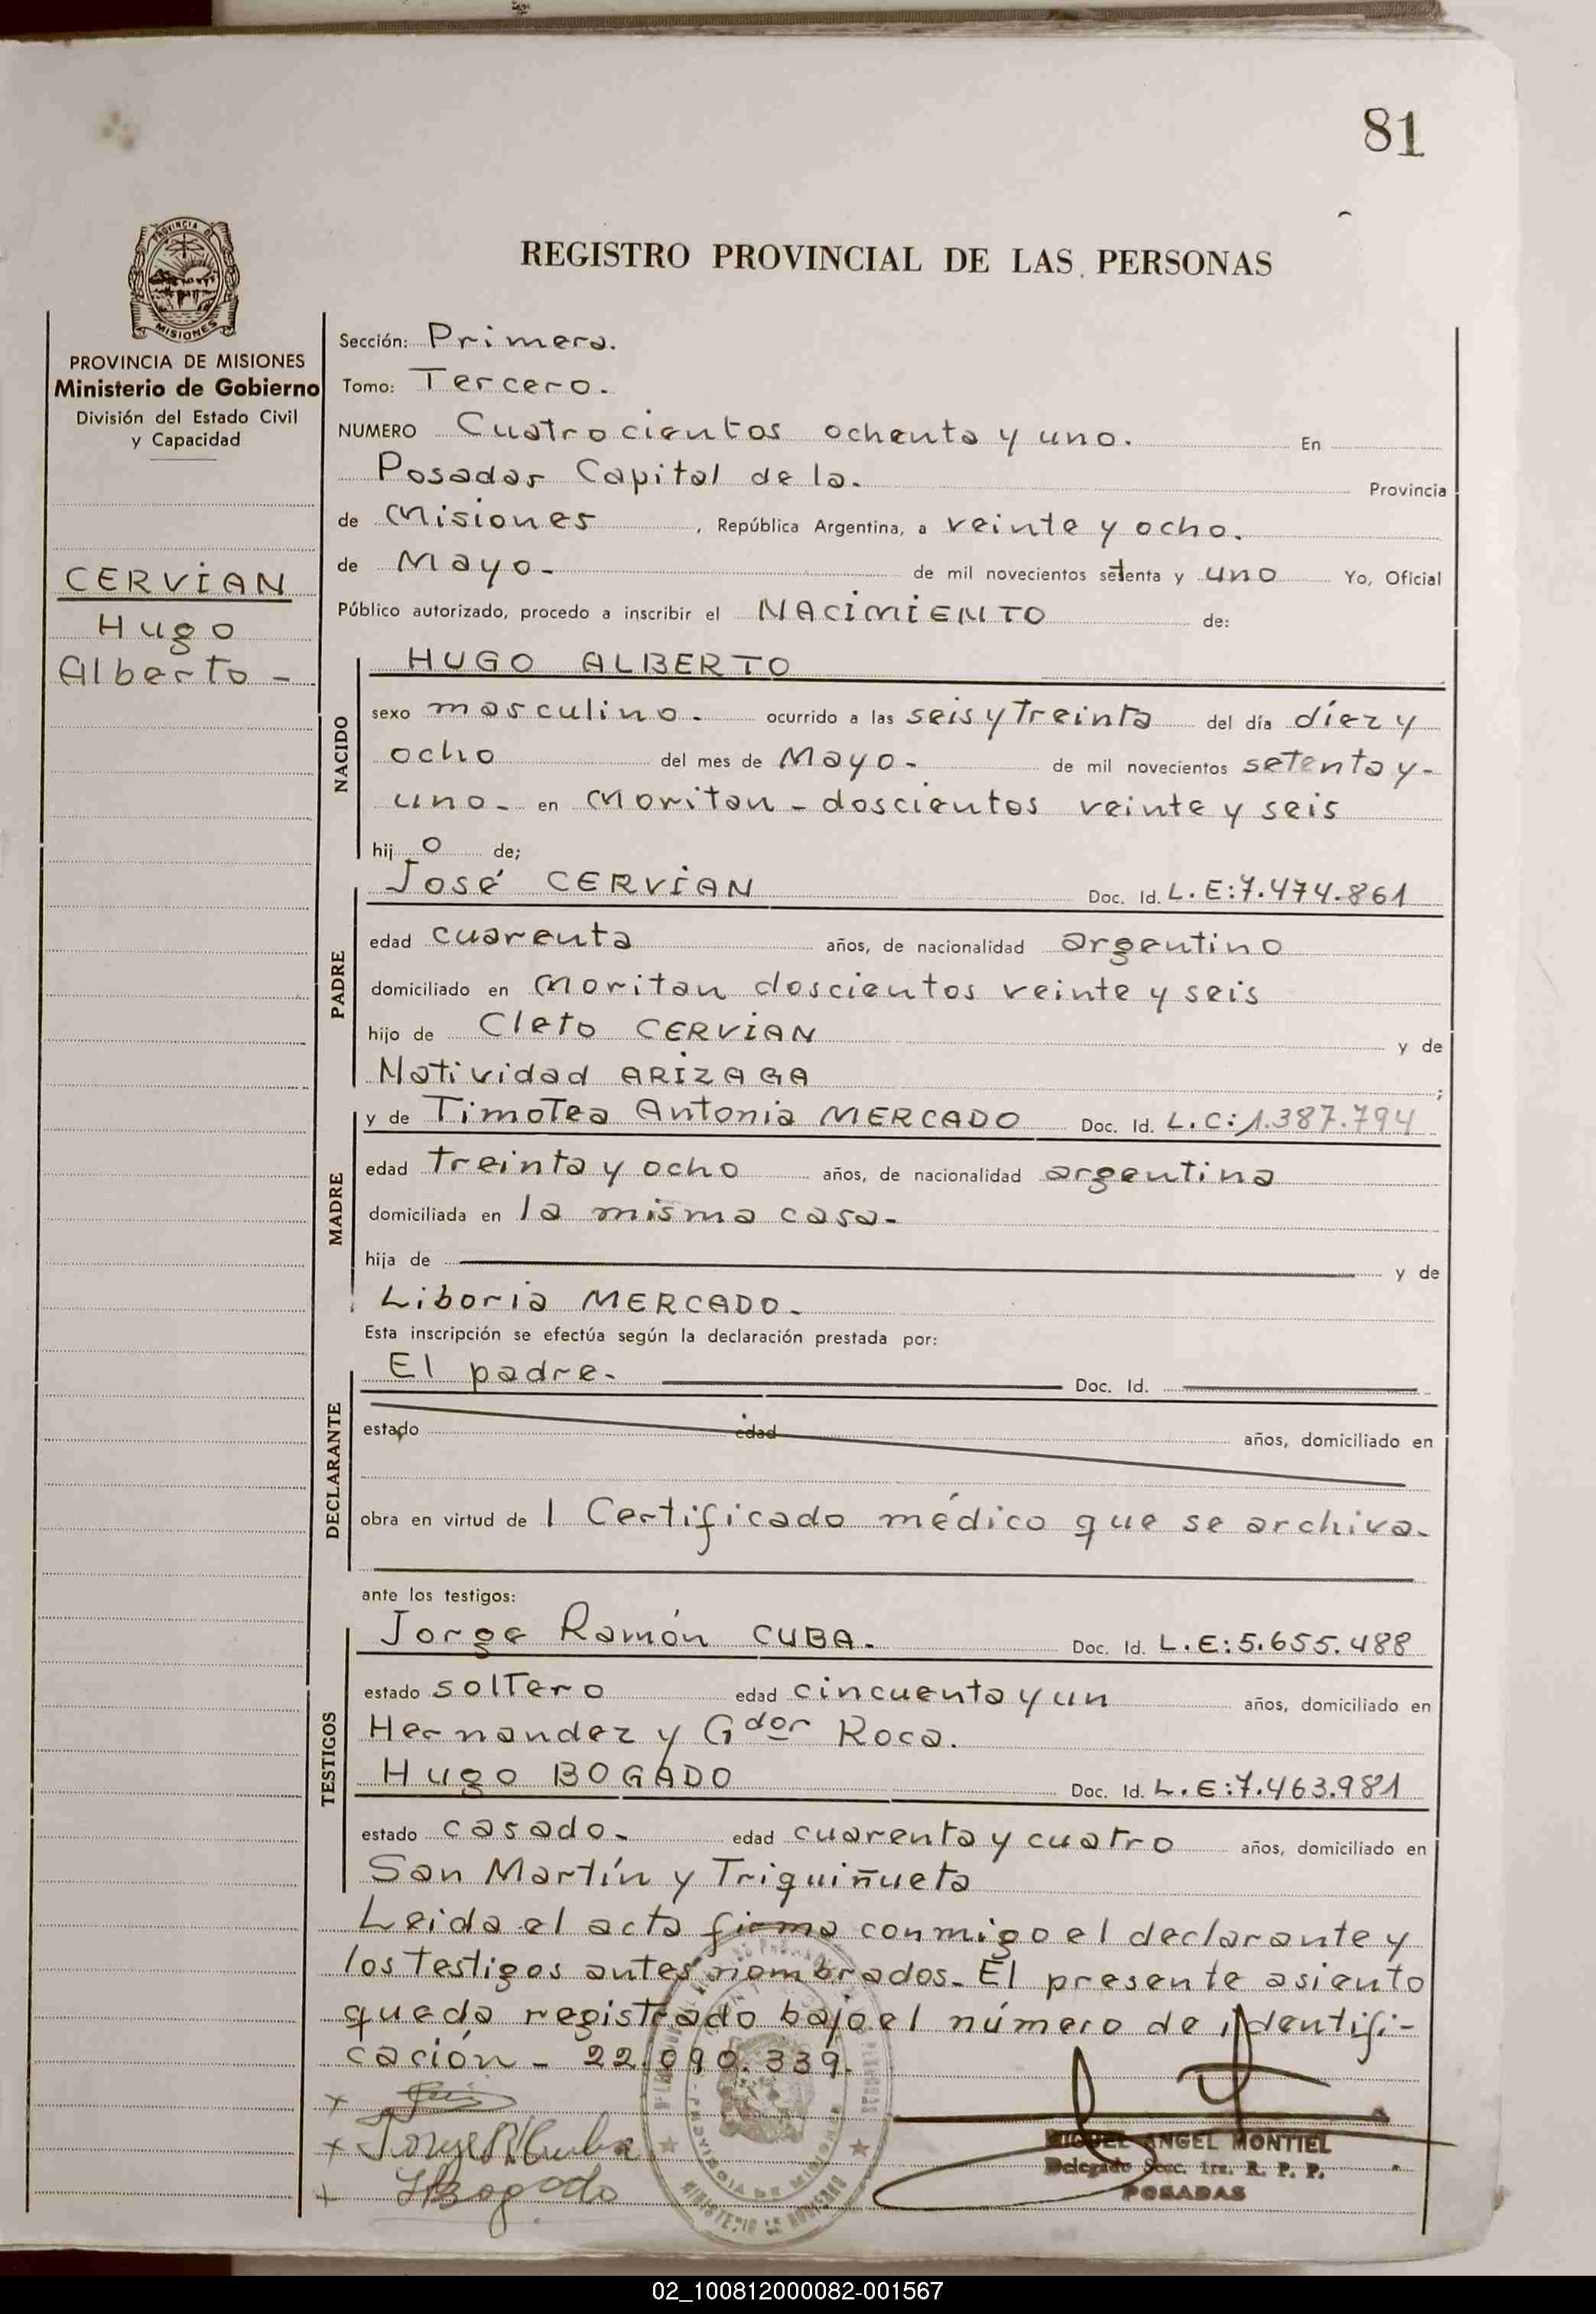 81
PROVINCIA DE
MISIONES
PROVINCIA DE MISIONES
Ministerio de Gobierno
División del Estado Civil
y Capacidad
CERViAN
Hugo
Alberto -
REGISTRO PROVINCIAL DE LAS PERSONAS
Sección: Primera.
Tomo: Tercero.
NUMERO Cuatrocientos ochenta y uno. En
Posadas Capital de la. Provincia
de Misiones , República Argentina, a veinte y ocho.
de Mayo- de mil novecientos setenta y uno Yo, Oficial
Público autorizado, procedo a inscribir el NACiMiENTO de:
HUGO ALBERTO
NACIDO
sexo masculino. ocurrido a las seis y Treinta del día díez y
ocho del mes de Mayo- de mil novecientos setenta y-
uno- en Moritan - doscientos veinte y seis
hij o de;
José CERViAN Doc. Id. L.E:7.474.861
PADRE
edad cuarenta años, de nacionalidad argentino
domiciliado en Moritan doscientos veinte y seis
hijo de Cleto CERViAN y de
Natividad ARiZAGA ;
y de Timotea Antonia MERCADO Doc. Id. L.C:1.387.794
MADRE
edad treinta y ocho años, de nacionalidad argentina
domiciliada en la misma casa-
hija de y de
Liboria MERCADO-
Esta inscripción se efectúa según la declaración prestada por:
El padre. Doc. Id.
DECLARANTE
estado edad años, domiciliado en
obra en virtud de 1 Certificado médico que se archiva-
ante los testigos:
TESTIGOS
Jorge Ramón CUBA. Doc. Id. L.E:5.655.488
estado soltero edad cincuenta y un años, domiciliado en
Hernandez y Gdor Roca.
Hugo BOGADO Doc. Id. L.E:7.463.981
estado casado- edad cuarenta y cuatro años, domiciliado en
San Martín y Triquiñueta
Leida el acta firma conmigo el declarante y
los testigos antes nombrados- El presente asiento
queda registrado bajo el número de identifi-
cación - 22.090.339.
MIGUEL ANGEL MONTIEL
Delegado Secc. 1ra. R. P. P.
POSADAS
02_100812000082-001567